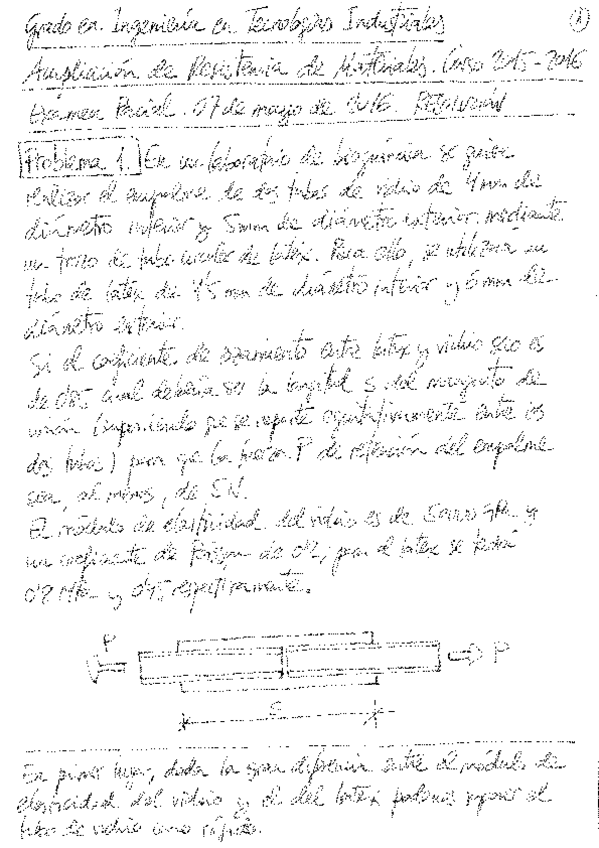 Grado en Ingeniería en Tecnologías Industriales
Ampliación de Resistencia de Materiales. Curso 2015-2016
Examen Parcial. 07 de mayo de 2016. RESOLUCIÓN
Problema 1. En un laboratorio de bioquímica se quiere
realizar el empalme de dos tubos de vidrio de 4 mm de
diámetro interior y 5 mm de diámetro exterior mediante
un trozo de tubo circular de látex. Para ello, se utilizará un
tubo de látex de 4'5 mm de diámetro interior y 6 mm de
diámetro exterior.
Si el coeficiente de rozamiento entre látex y vidrio seco es
de cual debería ser la longitud s del manguito de
unión (suponiendo que se reparte equitativamente entre los
dos tubos) para que la fuerza P de retención del empalme
sea, al menos, de 5N.
El módulo de elasticidad del vidrio es de y
un coeficiente de Poisson de 0'2; para el látex se tendrá
0'8 MPa y 0'45 respectivamente.
P
P
s
En primer lugar, dada la gran diferencia entre el módulo de
elasticidad del vidrio y el del látex podemos suponer el
tubo de vidrio como rígido.